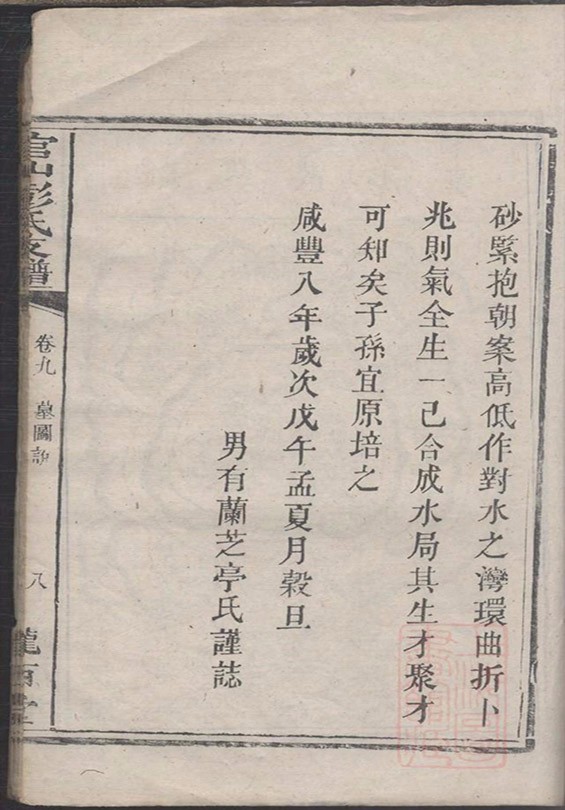 砂緊抱朝案高低作對水之灣環曲折卜
兆則氣全生一己合成水局其生才聚才
可知矣子孫宜原培之
咸豐八年歲次戊午孟夏月穀旦
男有蘭芝亭氏謹誌
官山彭氏支譜
卷九
墓圖說
八